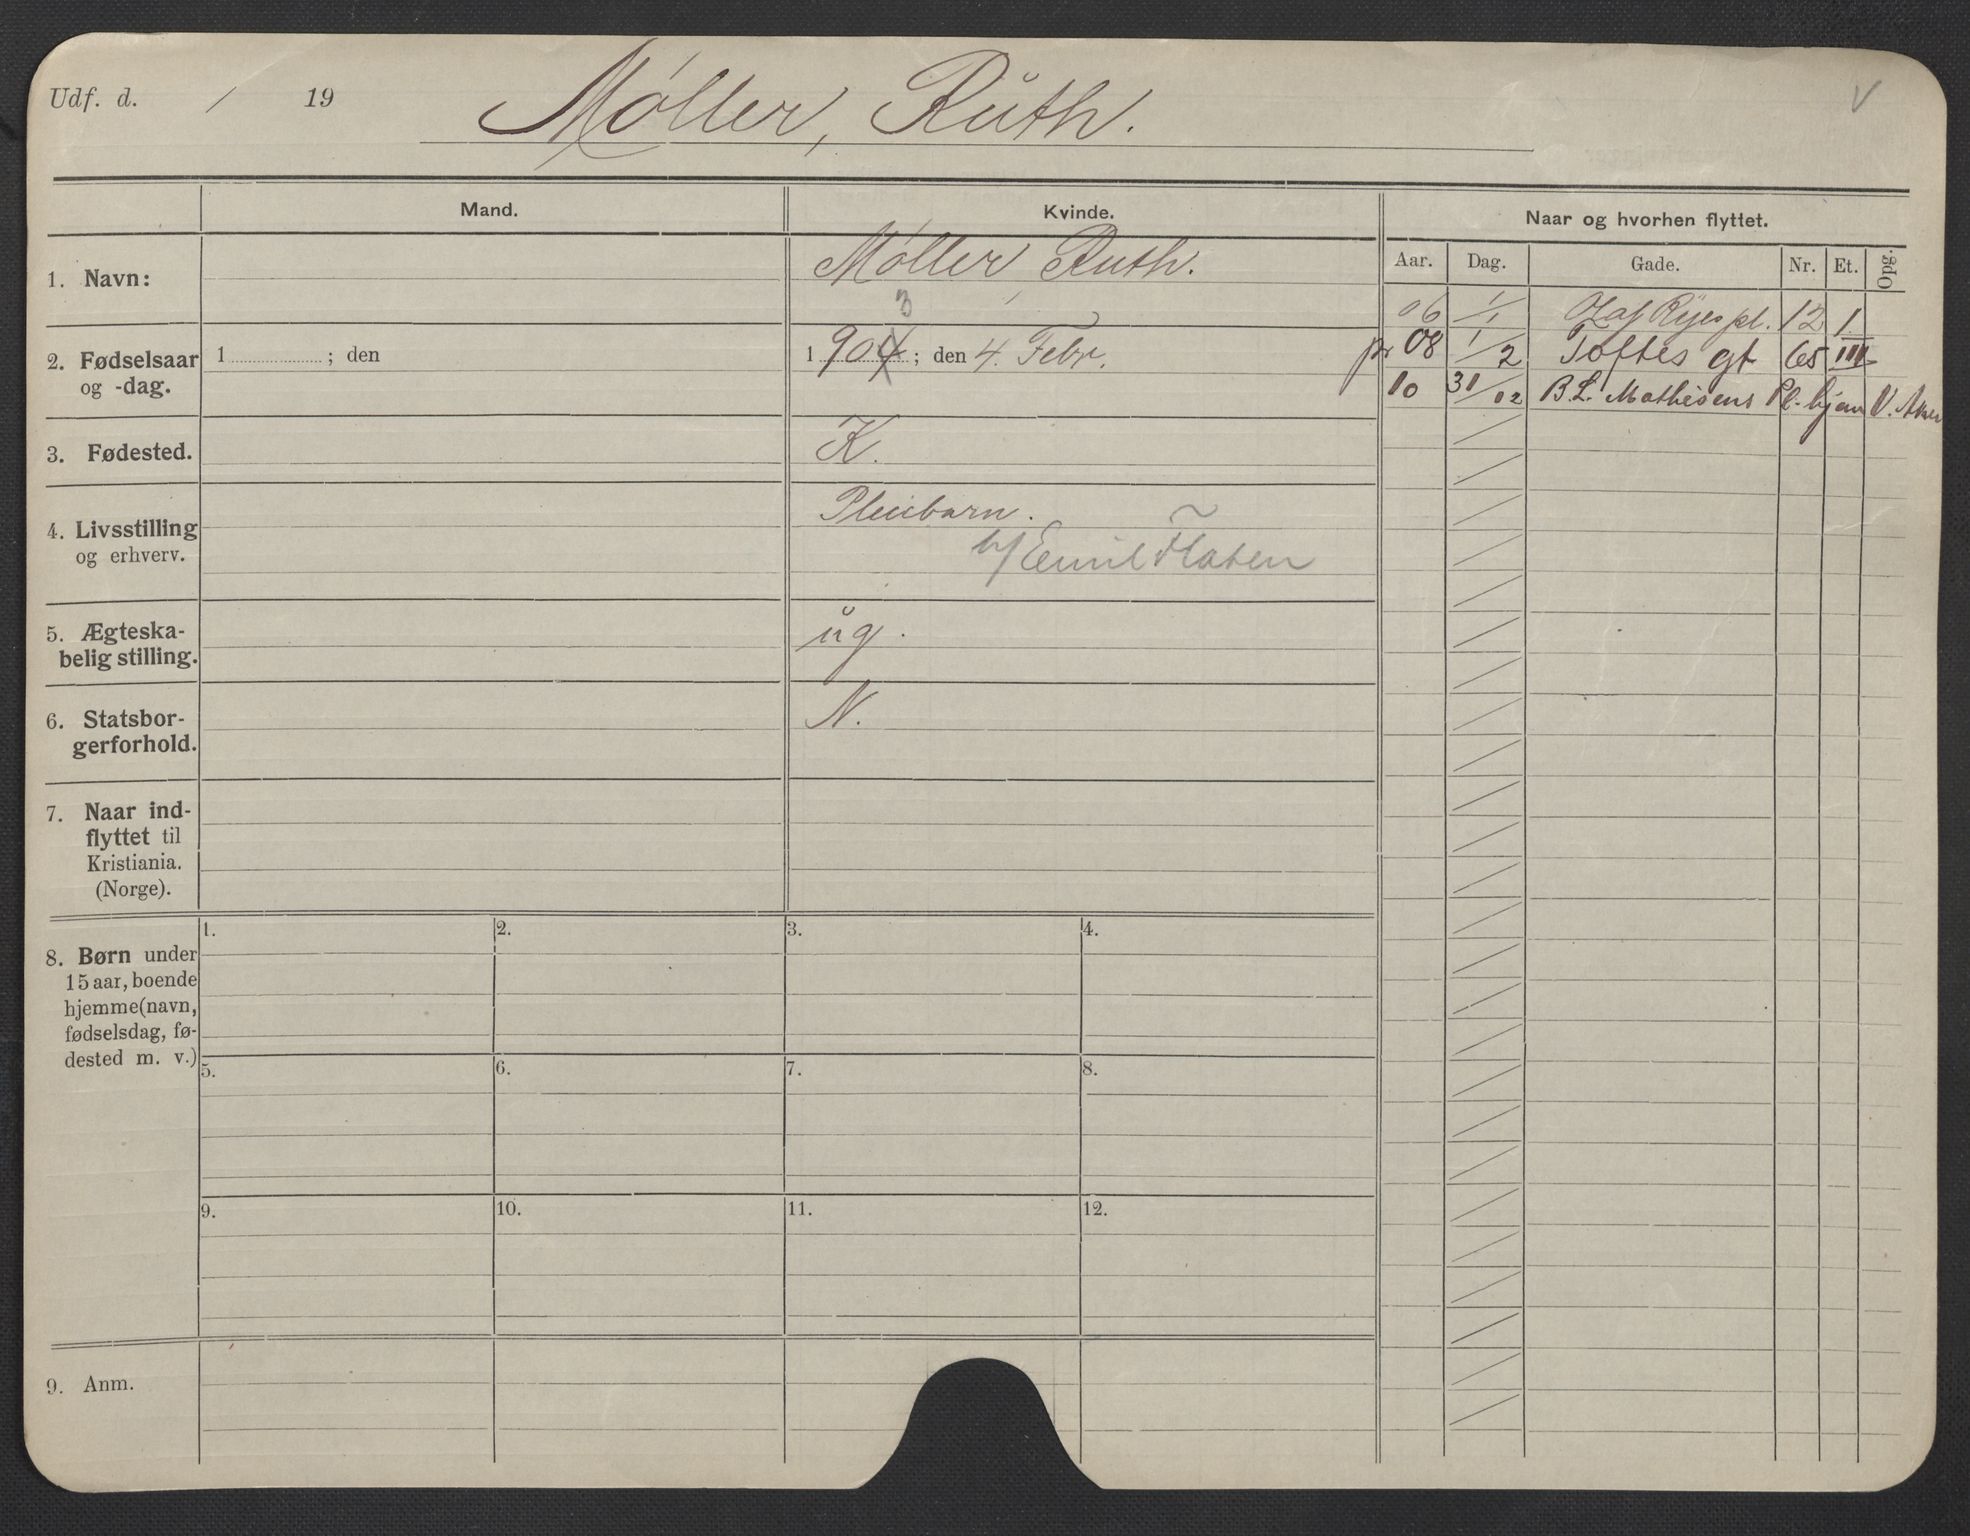 Udf. d. / 19 Møller, Ruth. V
Mand. Kvinde. Naar og hvorhen flyttet.
Aar. Dag. Gade. Nr. Et. Opg.
1. Navn: Møller, Ruth.
2. Fødselsaar
og -dag.
1 ; den
3
1904 ; den 4. Febr.
3. Fødested. K.
4. Livsstilling
og erhverv.
Pleiebarn.
h/ Emil Flaten
5. Ægteska-
belig stilling.
ug.
6. Statsbor-
gerforhold.
N.
7. Naar ind-
flyttet til
Kristiania.
(Norge).
8. Børn under
15 aar, boende
hjemme (navn,
fødselsdag, fø-
dested m. v.)
1. 2. 3. 4.
5. 6. 7. 8.
9. 10. 11. 12.
9. Anm.
06 1/1 Olaf Ryes pl. 12 I.
pr 08 1/2 Toftes gt 65 III
10 31/12 B.L. Mathisens Pl. hjem V. Aker